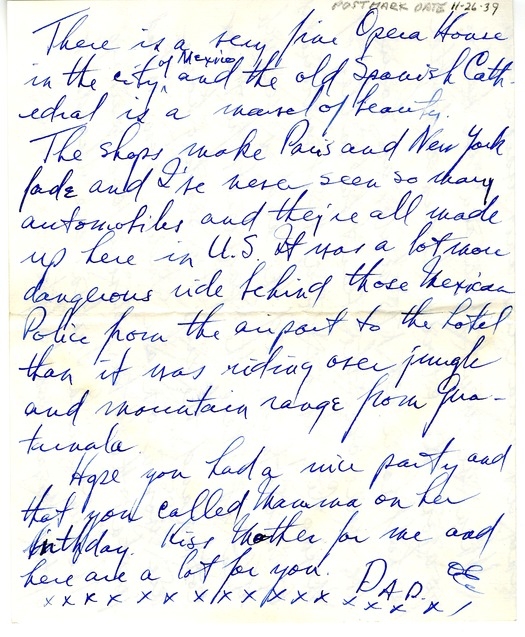 POSTMARK DATE 11-26-39
There is a very fine Opera House
in the city of Mexico, and the old Spanish Cath-
edral is a marvel of beauty.
The shops make Paris and New York
fade and I've never seen so many
automobiles and they're all made
up here in U.S. It was a lot more
dangerous ride behind those Mexican
Police from the airport to the hotel
than it was riding over jungle
and mountain range from Gua-
temala.
Hope you had a nice party and
that you called Mamma on her
birthday. Kiss Mother for me and
here are a lot for you. DAD.
x x x x x x x x x x x x x x x x